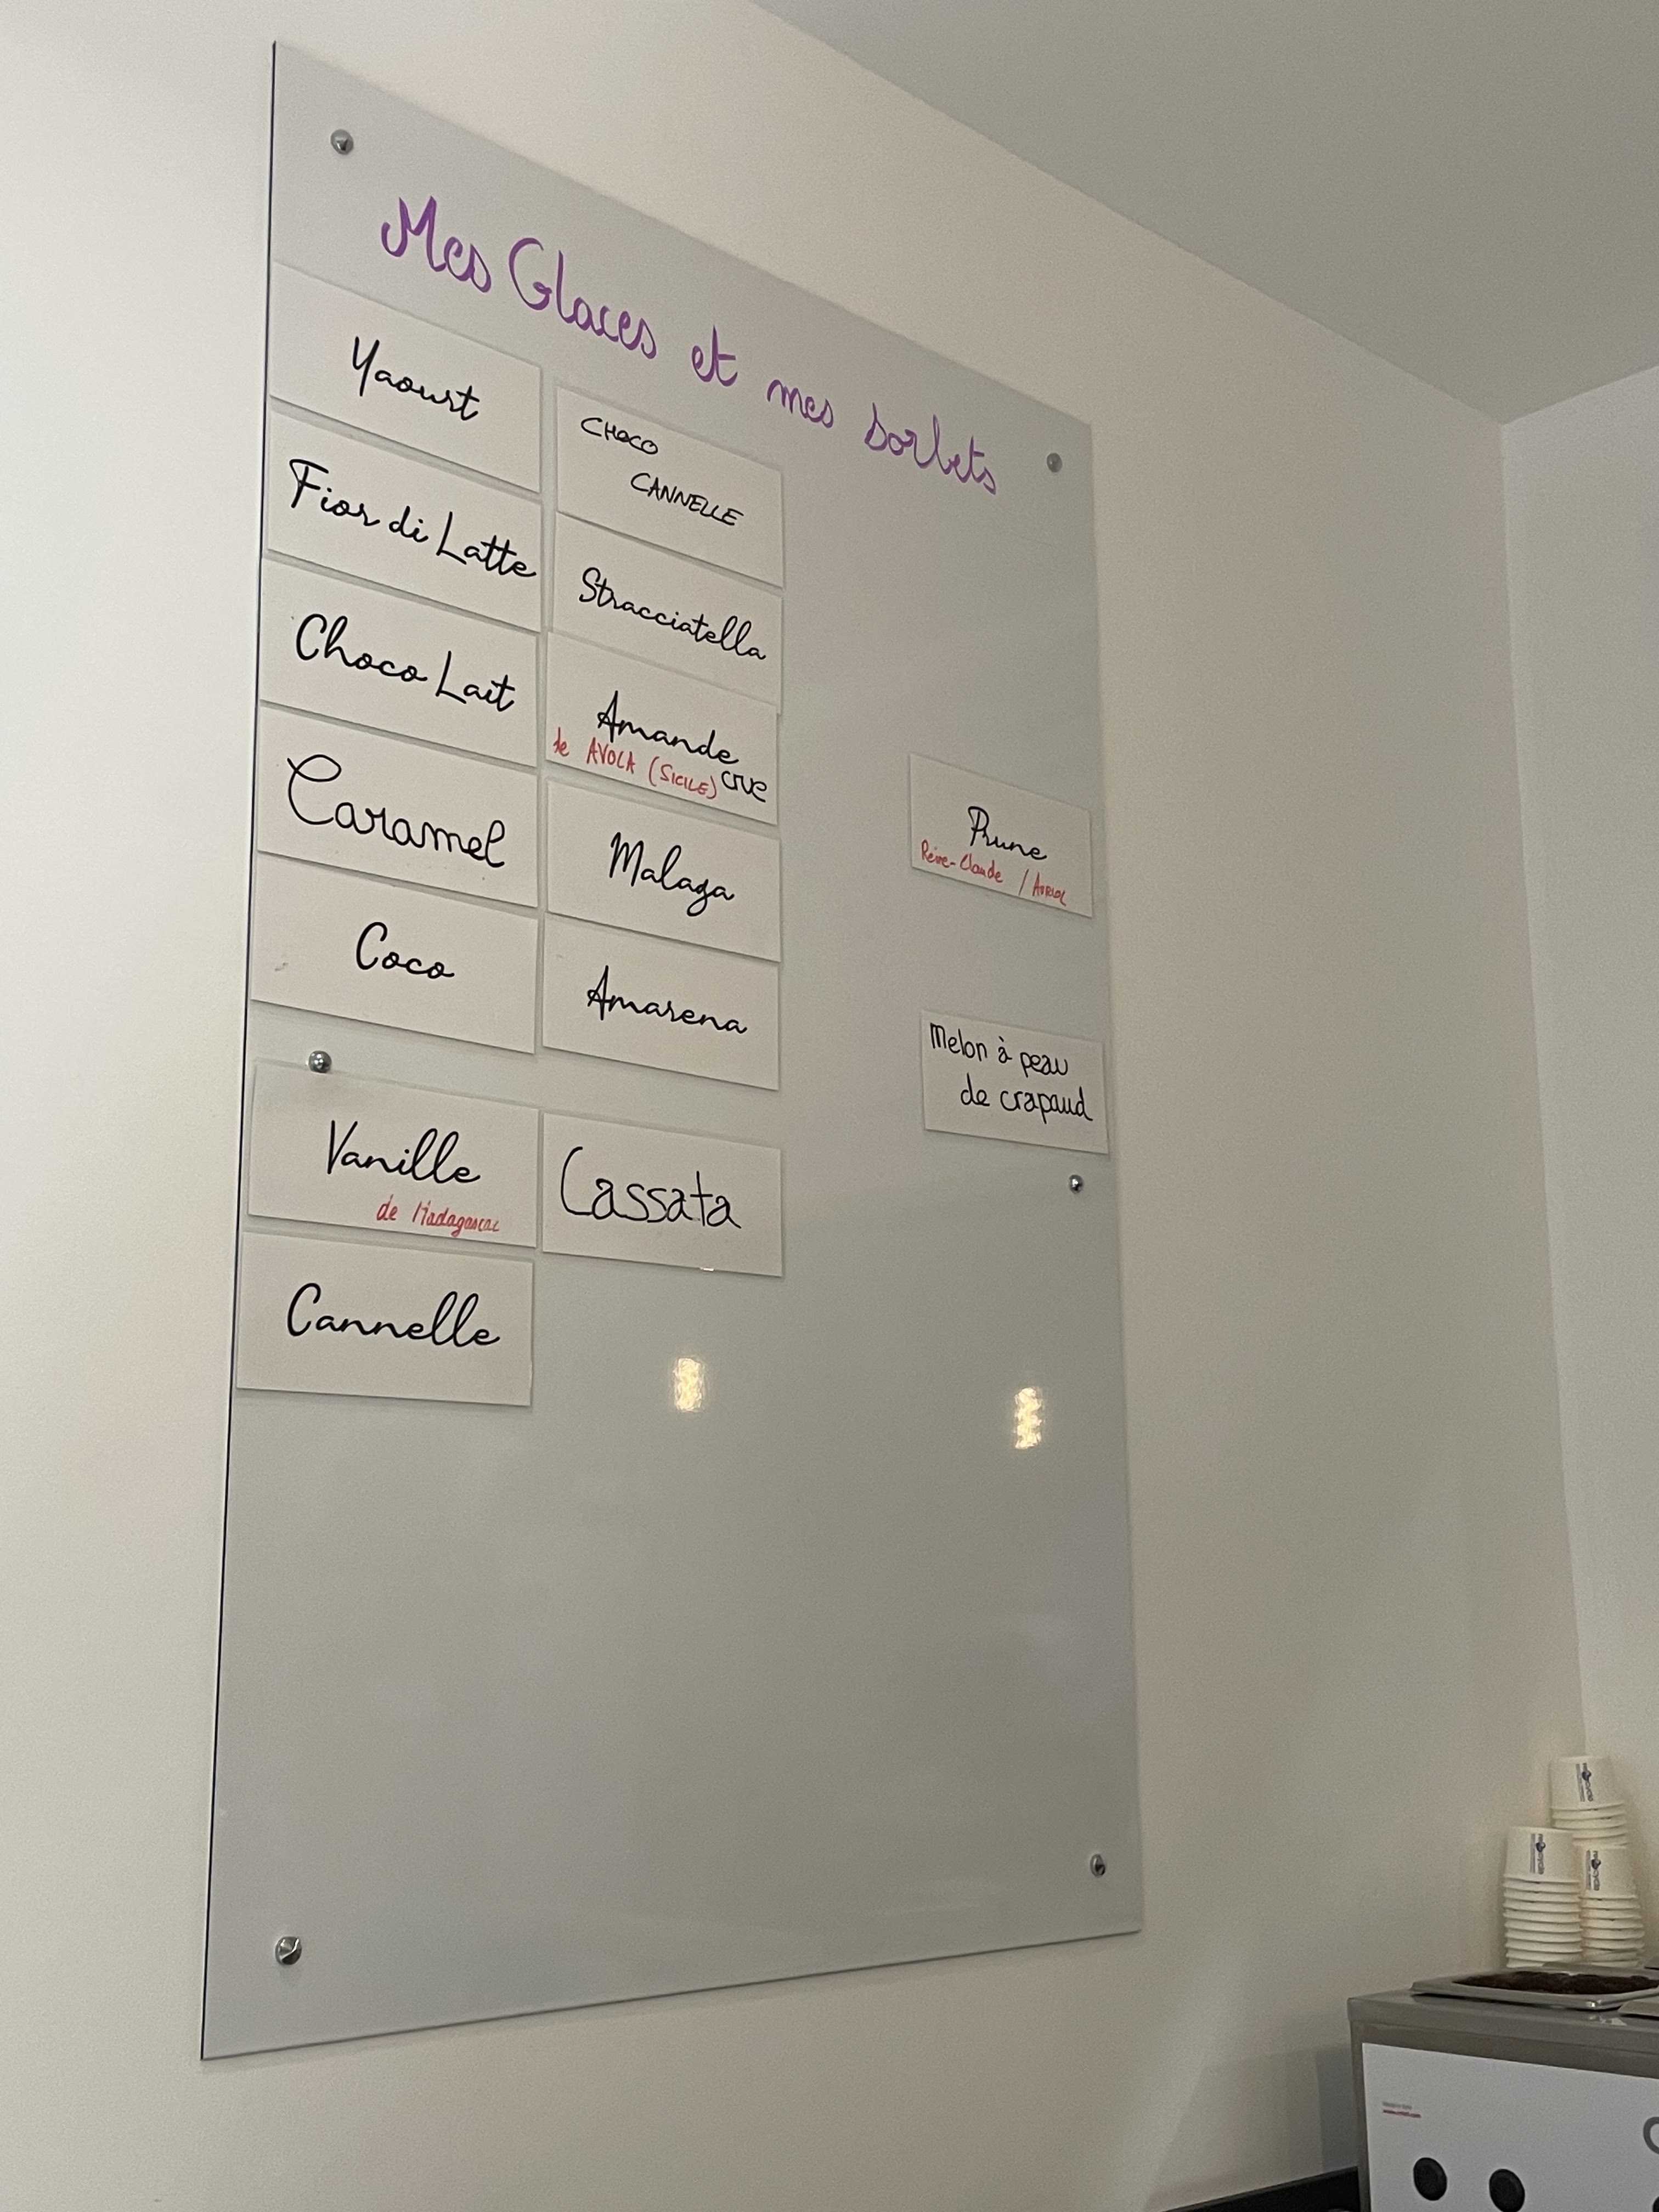 Mes Glaces et mes sorbets
Yaourt
Fior di Latte
Choco Lait
Caramel
Coco
Vanille
de Madagascar
Cannelle
CHOCO
CANNELLE
Stracciatella
Amande
crue
de AVOLA (SICILE)
Malaga
Amarena
Cassata
Prune
Reine-Claude / Auriol
Melon à peau
de crapaud